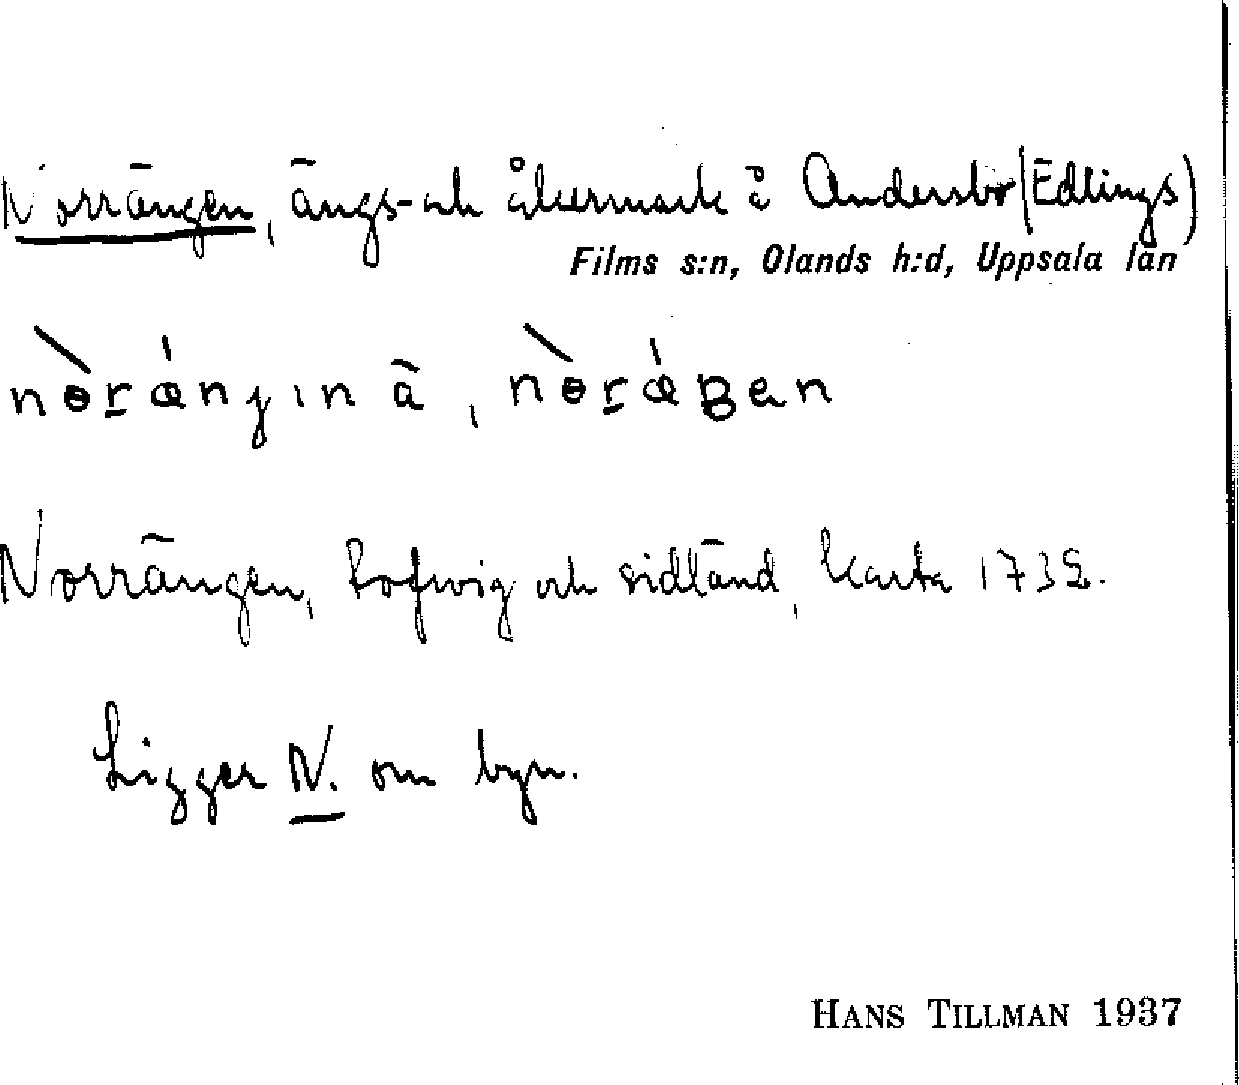 Norrängen, ängs- och åkermark å Andersbo (Edlings)
Films s:n, Olands h:d, Uppsala län
Norrängen, Tofwig och sidländ, karta 1732.
Ligger N. om byn.
HANS TILLMAN 1937